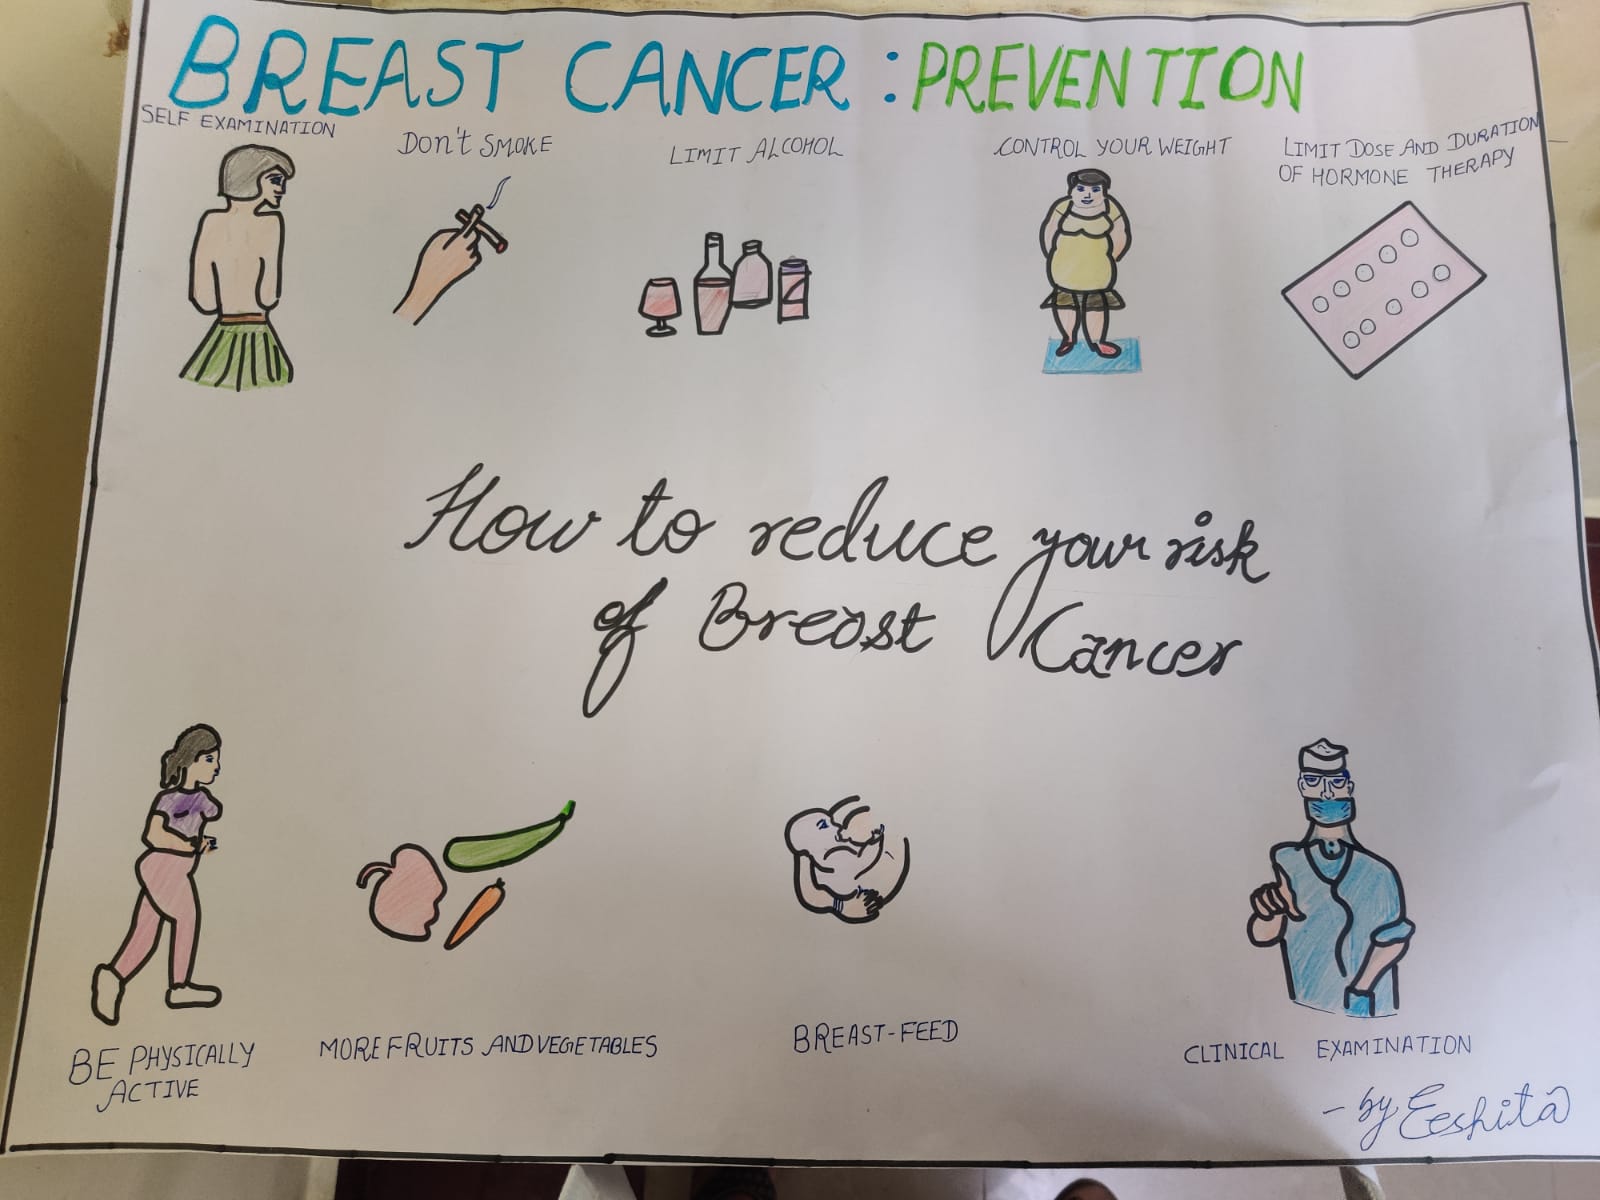 BREAST CANCER : PREVENTION
SELF EXAMINATION
Don't SMOKE
LIMIT ALCOHOL
CONTROL YOUR WEIGHT
LIMIT DOSE AND DURATION
OF HORMONE THERAPY
How to reduce your risk
of Breast Cancer
BE PHYSICALLY
ACTIVE
MORE FRUITS AND VEGETABLES
BREAST-FEED
CLINICAL EXAMINATION
- by Eeshita